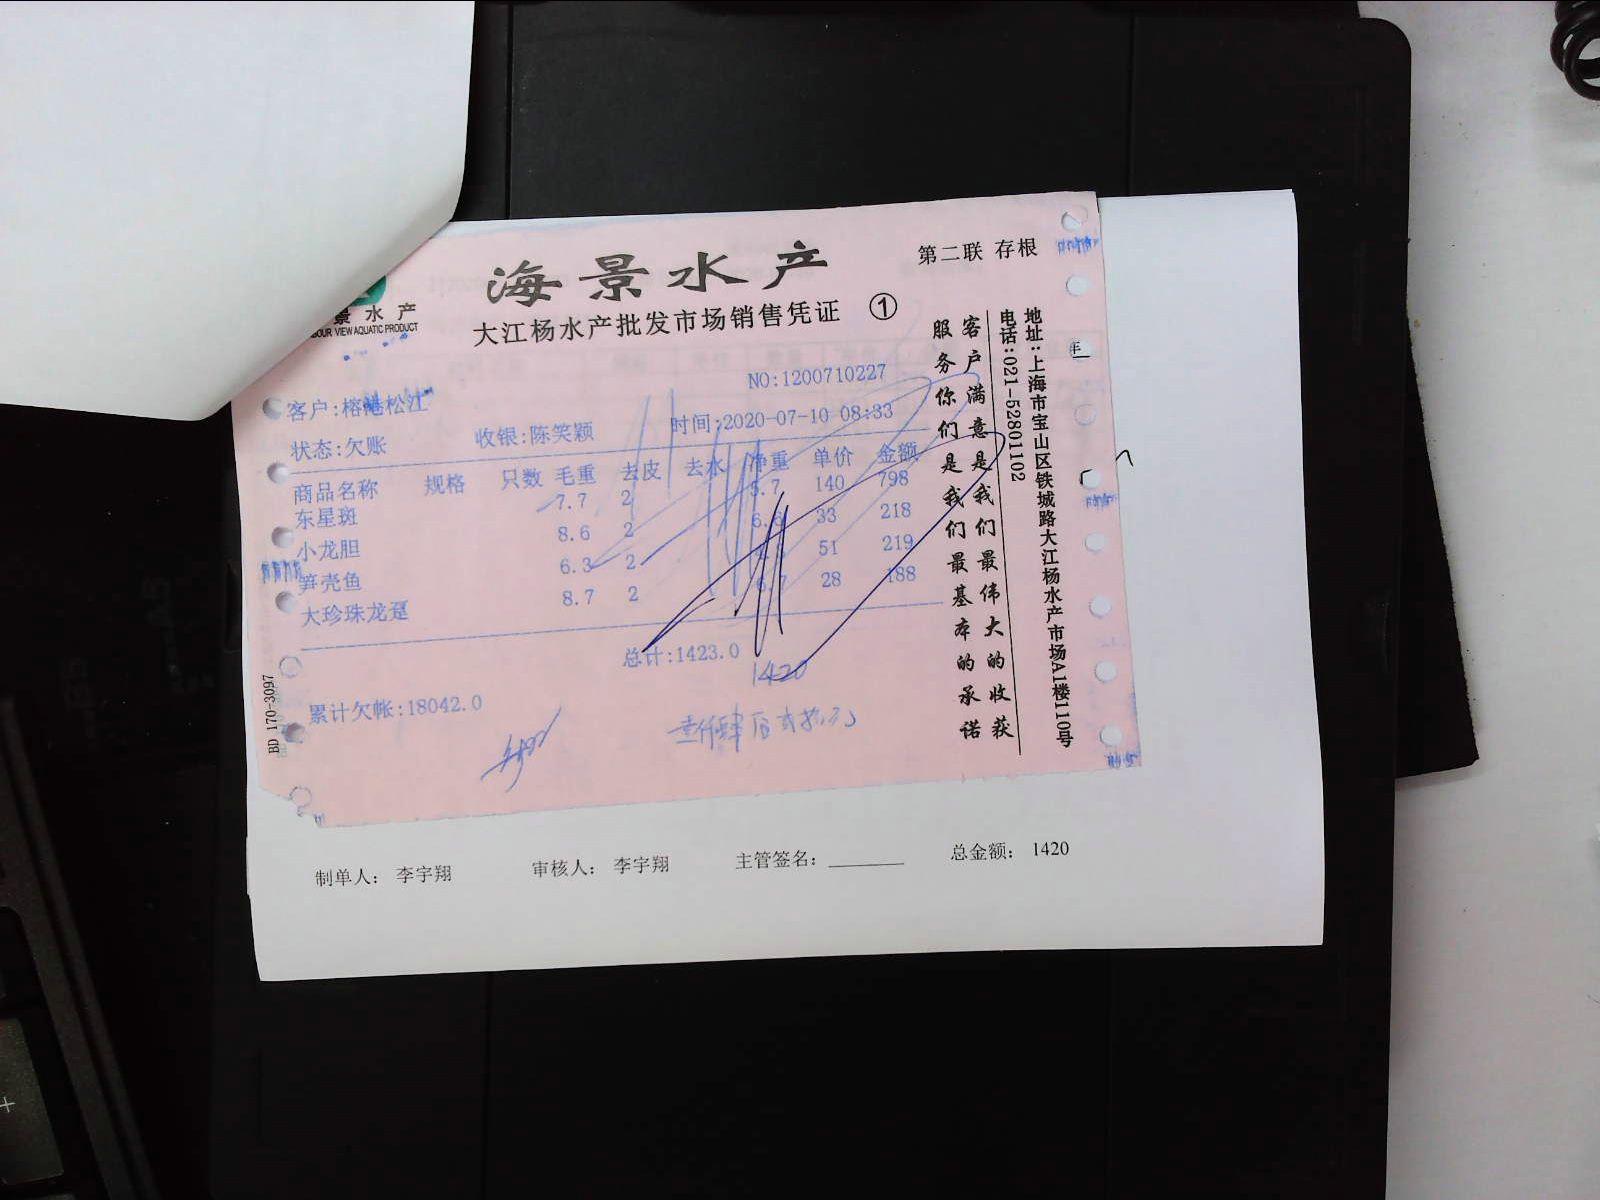 海景水产
第二联 存根
景水产
BOUR VIEW AQUATIC PRODUCT
大江杨水产批发市场销售凭证 ①
NO:1200710227
客户:榕港松江
时间:2020-07-10 08:33
状态:欠账 收银:陈笑颖
商品名称 规格 只数 毛重 去皮 去水 净重 单价 金额
东星斑 7.7 2 5.7 140 798
小龙胆 8.6 2 6.6 33 218
笋壳鱼 6.3 2 51 219
大珍珠龙趸 8.7 2 6.7 28 188
总计:1423.0
1420
累计欠帐:18042.0
壹仟肆佰贰拾元
BD 170-3097
客户满意是我们最伟大的收获
服务你们是我们最基本的承诺
地址:上海市宝山区铁城路大江杨水产市场A1楼110号
电话:021-52801102
制单人: 李宇翔 审核人: 李宇翔 主管签名: 总金额: 1420